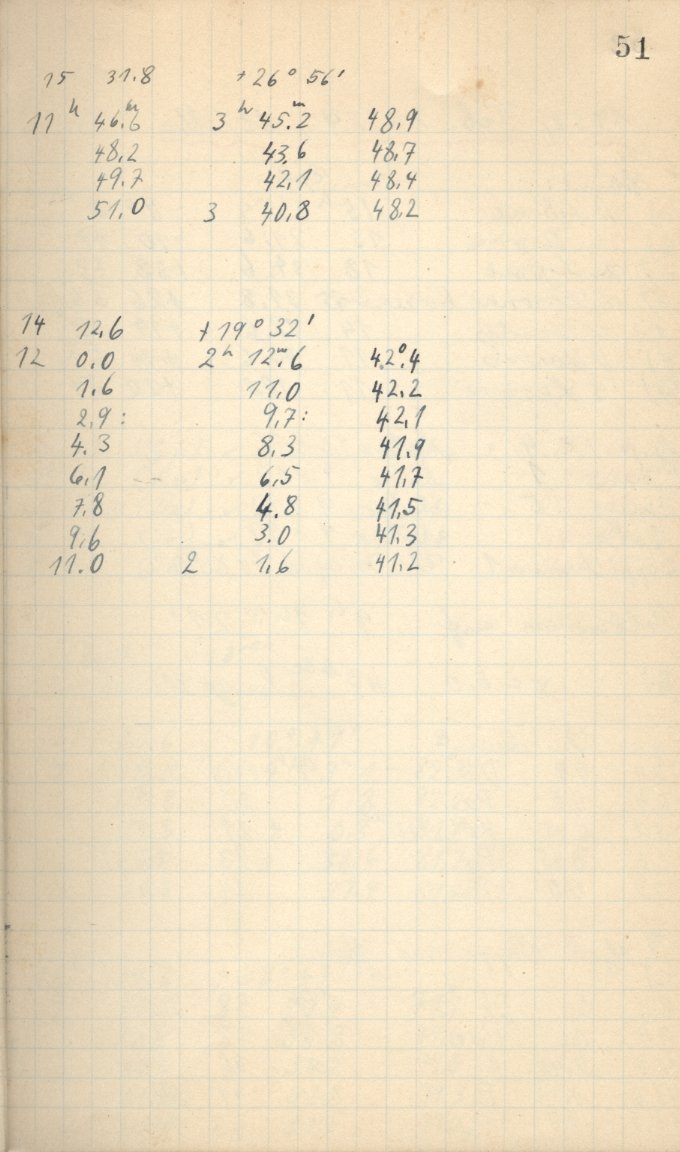 51
15 31.8 +26° 56'
11ʰ 46.6ᵐ 3ʰ 45.2ᵐ 48.9
48.2 43.6 48.7
49.7 42.1 48.4
51.0 3 40.8 48.2
14 12.6 +19° 32'
12 0.0 2ʰ 12ᵐ.6 42°.4
1.6 11.0 42.2
2.9: 9.7: 42.1
4.3 8.3 41.9
6.1 6.5 41.7
7.8 4.8 41.5
9.6 3.0 41.3
11.0 2 1.6 41.2